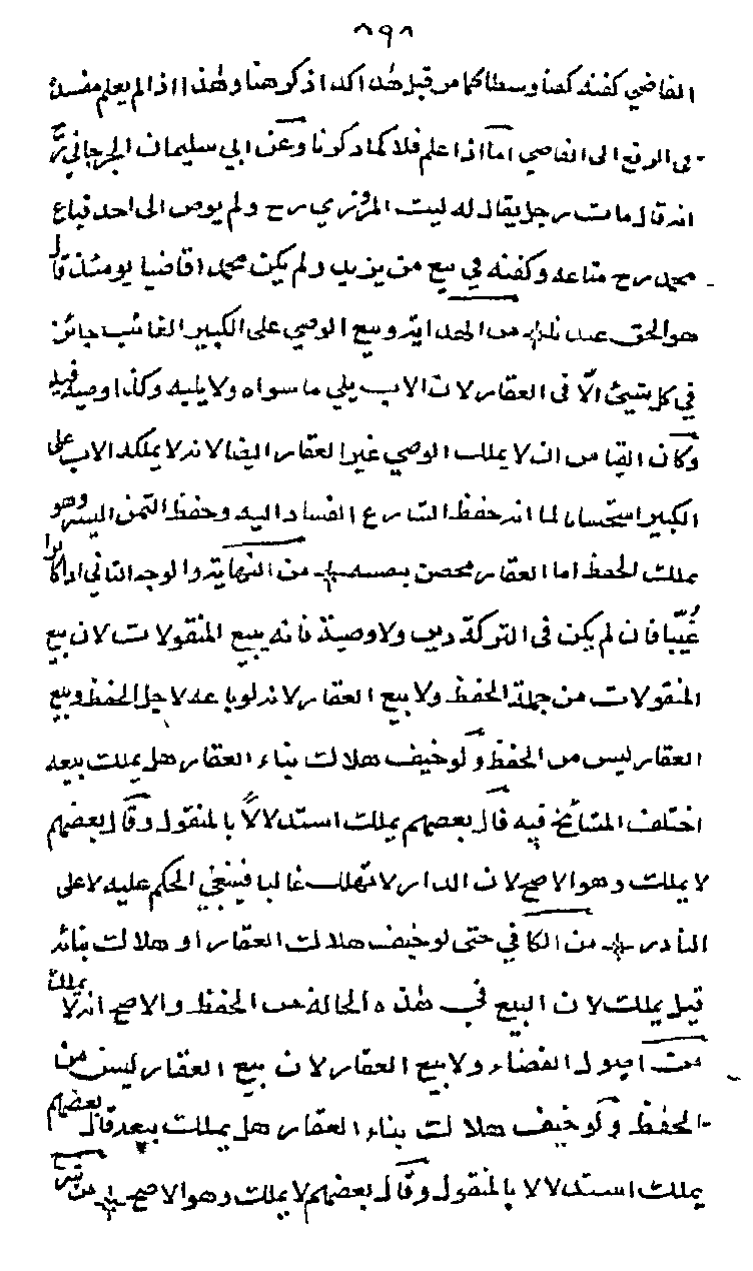 ٨٩٨
القاضي كفنه كفنا وسطا كما من قبل هذا كله اذكر هنا وهذا اذا لم يعلم مفسدة
في الرفع الى القاضي اما اذا علم فلا كما ذكرنا وعن ابي سليمان الجرجاني رح
انه قال مات رجل يقال له ليث المروزي رح ولم يوص الى احد فباع
محمد رح متاعه وكفنه في بيع من يزيد ولم يكن محمد قاضيا يومئذ قال
هو الحق عندنا من الهداية وبيع الوصي على الكبير الغائب جائز
في كل شيئ الا في العقار لان الاب يلي ما سواه ولا يليه وكذا وصيه فيه
وكان القياس ان لا يملك الوصي غير العقار ايضا لانه لا يملكه الاب على
الكبير استحسان لما انه حفظ لتسارع الفساد اليه وحفظ الثمن ايسر وهو
يملك الحفظ اما العقار محصن بنفسه من النهاية والوجه الثاني اذا كانوا
غيبا فان لم يكن في التركة دين ولا وصية فانه يبيع المنقولات لان بيع
المنقولات من جملة الحفظ ولا يبيع العقار لانه لو باعه لاجل الحفظ وبيع
العقار ليس من الحفظ ولو خيف هلاك بناء العقار هل يملك بيعه
اختلف المشائخ فيه قال بعضهم يملك استدلالا بالمنقول وقال بعضهم
لا يملك وهو الاصح لان الدار لا تهلك غالبا فينبغي الحكم عليه لا على
النادر من الكافي حتى لو خيف هلاك العقار او هلاك بنائه
قيل يملك لان البيع في هذه الحالة من الحفظ والاصح انه لا يملك
من اصول القضاء ولا يبيع العقار لان بيع العقار ليس من
الحفظ ولو خيف هلاك بناء العقار هل يملك بيعه قال بعضهم
يملك استدلالا بالمنقول وقال بعضهم لا يملك وهو الاصح من شرح